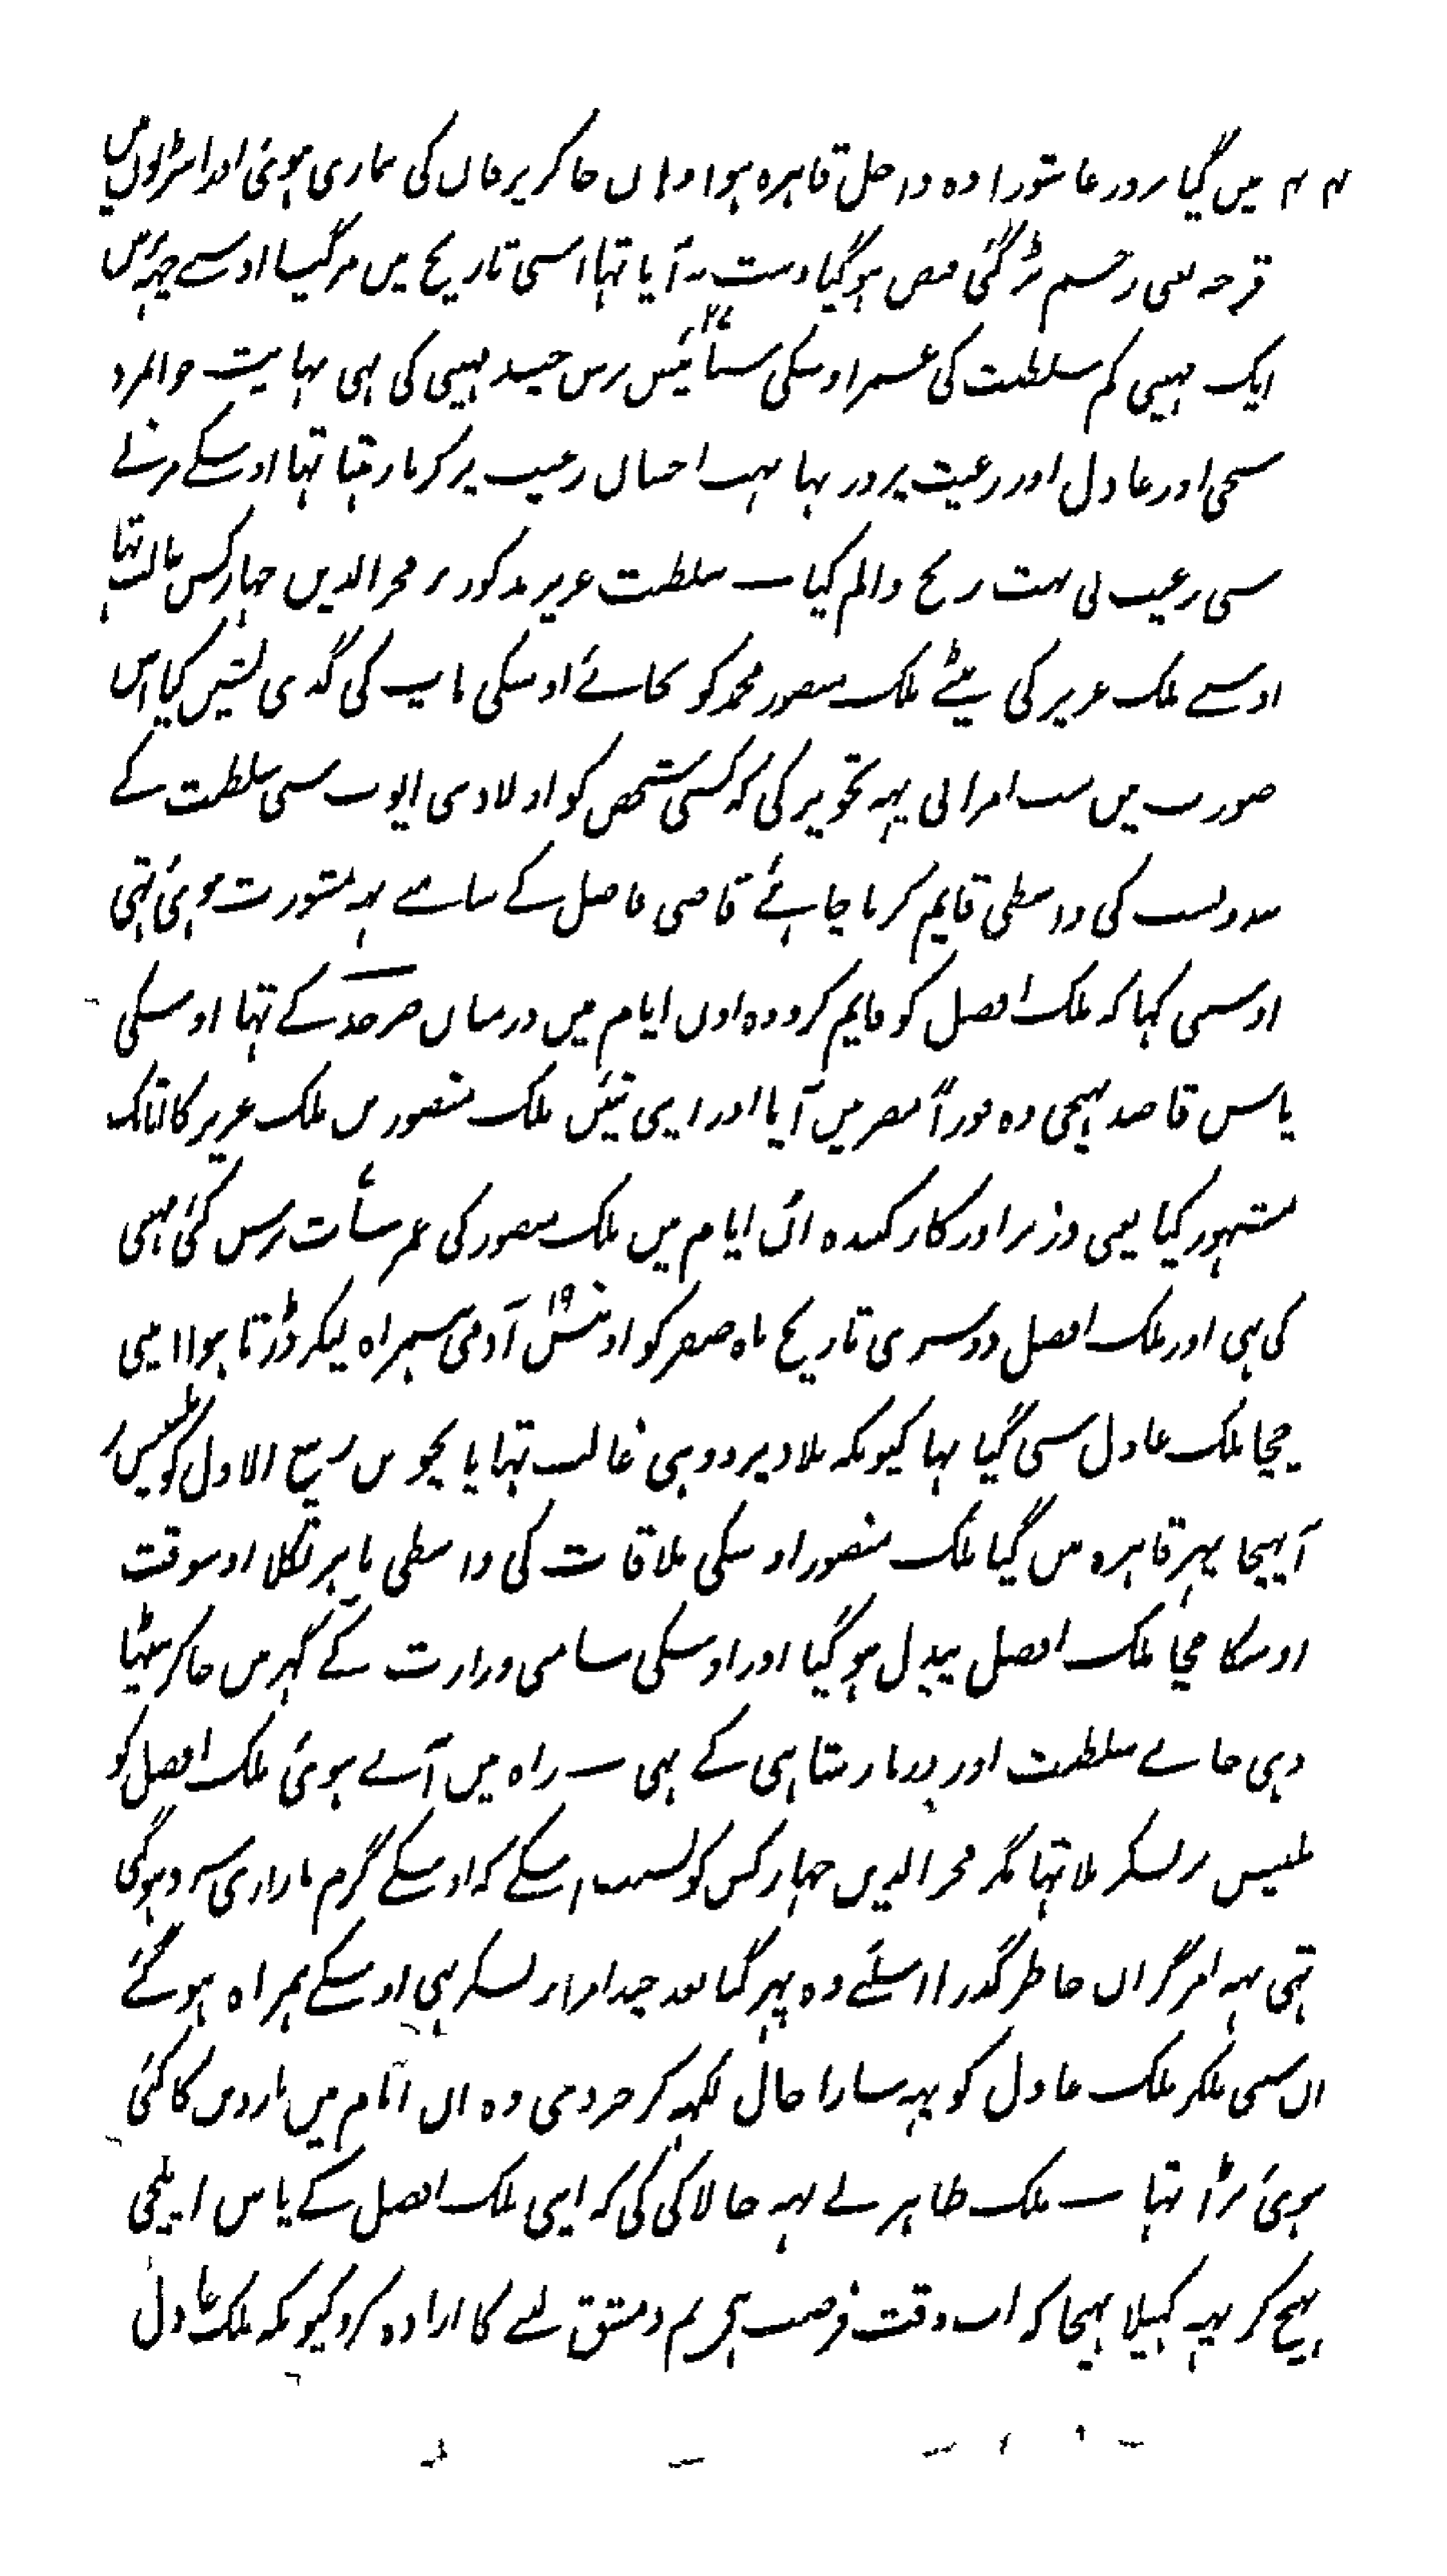 میں گیا روز عاشورا وہ داخل قاہرہ ہوا وہاں جا کر یرقان کی بیماری ہوئی اور انتڑیوں میں
قرحہ یعنی زخم پڑ گئی قبض ہو گیا دست نہ آیا تہا اسی تاریخ میں مر گیا اوسے چہہ برس
ایک مہینی کم سلطنت کی عمر اوسکی ستائیس ۲۷ برس چند مہینی کی تہی نہایت جوانمرد
سخی اور عادل اور رعیت پرور تہا بہت احسان رعیت پر کرتا رہتا تہا اوسکے مرنے
سی رعیت نی بہت رنج و الم کیا ۔ سلطنت عزیز مذکور پر فخر الدین جہارکس غالب تہا
اوسے ملک عزیز کی بیٹے ملک منصور محمد کو بجائے اوسکی باپ کی گدی نشیں کیا اس
صورت میں سب امرا نی یہہ تجویز کی کہ کسی شخص کو اولاد بنی ایوب سی سلطنت کے
بندوبست کی واسطی قایم کرنا چاہئے قاضی فاضل کے سامنے یہہ مشورت ہوئی تہی
اوسی کہا کہ ملک افضل کو قایم کرو وہ اون ایام میں درمیان صرخد کے تہا اوسکی
پاس قاصد بہیجی وہ فوراً مصر میں آیا اور اپنی تئیں ملک منصور بن ملک عزیز کا اتابک
مشہور کیا یعنی وزیر اور کارکنندہ ان ایام میں ملک منصور کی عمر سات برس کئی مہینی
کی تہی اور ملک افضل دوسری تاریخ ماہ صفر کو اونیس ۱۹ آدمی ہمراہ لیکر ڈرتا ہوا اپنی
چچا ملک عادل سی گیا تہا کیونکہ بلاد پر وہ ہی غالب تہا پانچویں ربیع الاول کو بلبیس
آ پہنچا پہر قاہرہ میں گیا ملک منصور اوسکی ملاقات کی واسطی باہر نکلا اوسوقت
اوسکا چچا ملک افضل پیدل ہو گیا اور اوسکی سامنی وزارت کے گہر میں جا کر بیٹہا
وہی جائے سلطنت اور دربار شاہی کے تہی ۔ راہ میں آتے ہوئی ملک افضل کو
بلبیس پر لشکر ملا تہا مگر فخر الدین جہارکس کو بسبب اسکے کہ اوسکے گرم بازاری سرد ہو گئی
تہی یہہ امر گراں خاطر گذرا اسلئے وہ پہر گیا بعد چند امرا لشکر بہی اوسکے ہمراہ ہو گئے
ان سی ملکر ملک عادل کو یہہ سارا حال لکہہ کر خبر دی وہ ان ایام میں ماردین کا کئی
ہوئی پڑا تہا ۔ ملک ظاہر نے یہہ چالاکی کی کہ اپنی ملک افضل کے پاس ایلچی
بہیج کر یہہ کہلا بہیجا کہ اب وقت فرصت ہی تم دمشق لینے کا ارادہ کرو کیونکہ ملک عادل